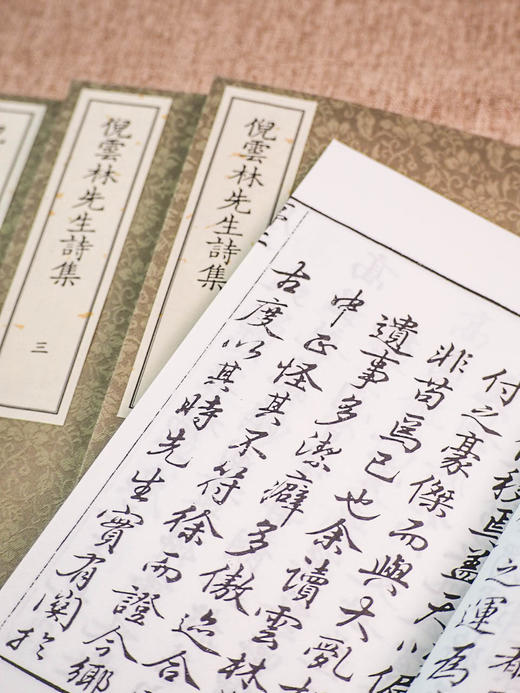 倪雲林先生詩集
三
倪雲林先生詩集
付之豪傑而與大亂
非苟焉已也余讀雲林
遺事多潔癖多傲迹合
中正怪其不符徐而證今鄉
古度以其時先生實有関於